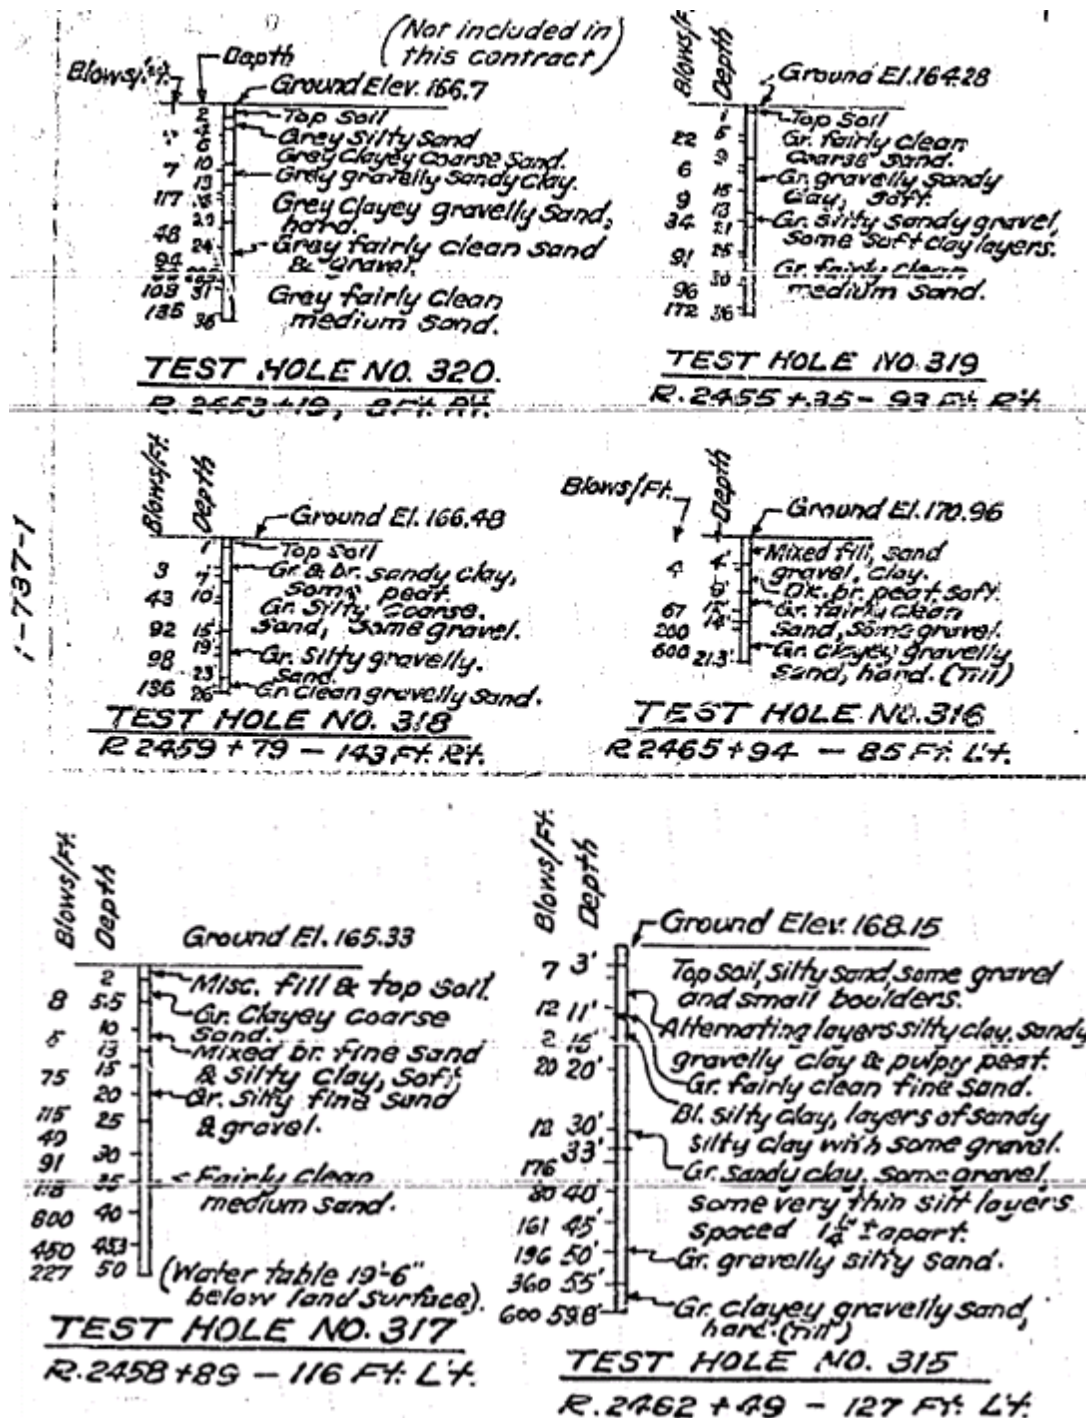 (Not included in
this contract)
Depth
Blows/
Ground Elev. 166.7
Top Soil
Grey Silty Sand
Grey Clayey Coarse Sand.
7 10 Grey gravelly Sandy Clay.
13
117 Grey Clayey gravelly Sand,
hard.
48 24 Grey fairly clean sand
94 & gravel.
31 Grey fairly clean
135 36 medium sand.
TEST HOLE NO. 320.
R. 2453+19, 8 Ft. Rt.
Blows/Ft.
Depth
Ground El. 164.28
Top Soil
22 Gr. fairly clean
9 coarse sand.
6 Gr. gravelly sandy
9 Clay, soft.
34 21 Gr. silty sandy gravel,
some soft clay layers.
91 25 Gr. fairly clean
96 30 medium sand.
172 36
TEST HOLE NO. 319
R. 2455+35 - 93 Ft. Rt.
1-737-1
Blows/Ft.
Depth
Ground El. 166.48
1' Top Soil
3 7' Gr. & br. sandy clay,
some peat.
43 10' Gr. Silty coarse.
92 15' sand, some gravel.
19' Gr. Silty gravelly.
98 23 sand.
136 26' Gr. clean gravelly sand.
TEST HOLE NO. 318
R 2459+79 - 143 Ft. Rt.
Blows/Ft.
Depth
Ground El. 170.96
4 4' Mixed fill, sand
gravel, clay.
Dk. br. peat, soft.
67 12' Gr. fairly clean
200 14' sand, some gravel.
600 21.3' Gr. clayey gravelly
sand, hard. (Till)
TEST HOLE NO. 316
R 2465+94 - 85 Ft. L't.
Blows/Ft.
Depth
Ground El. 165.33
2 Misc. fill & top soil.
8 5.5 Gr. Clayey coarse
10 Sand.
13 Mixed br. fine sand
75 15 & silty clay, soft,
20 Gr. silty fine sand
115 25 & gravel.
49
91 30
118 35 < Fairly clean
medium sand.
800 40
450 45.3
227 50 (Water table 19'-6"
below land surface).
TEST HOLE NO. 317
R. 2458+89 - 116 Ft. L't.
Blows/Ft.
Depth
Ground Elev. 168.15
7 3' Top soil, silty sand, some gravel
and small boulders.
12 11' Alternating layers silty clay, sandy
2 gravelly clay & pulpy peat.
20 20' Gr. fairly clean fine sand.
Bl. silty clay, layers of sandy
12 30' silty clay with some gravel.
33'
176 Gr. sandy clay, some gravel,
80 40' some very thin silt layers
161 45' spaced 1/4" ± apart.
196 50' Gr. gravelly silty sand.
360 55'
600 59.8' Gr. clayey gravelly sand,
hard. (Till)
TEST HOLE NO. 315
R. 2462+49 - 127 Ft. L't.